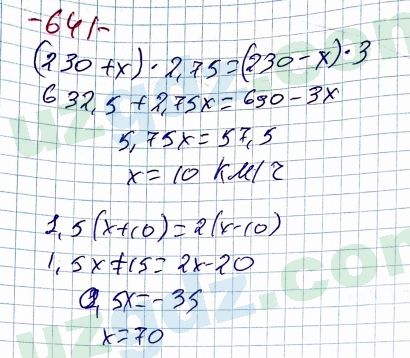 -641-
(230+x)·2,75=(230-x)·3
632,5+2,75x=690-3x
5,75x=57,5
x=10 км/ч
1,5(x+10)=2(x-10)
1,5x+15=2x-20
0,5x=-35
x=70